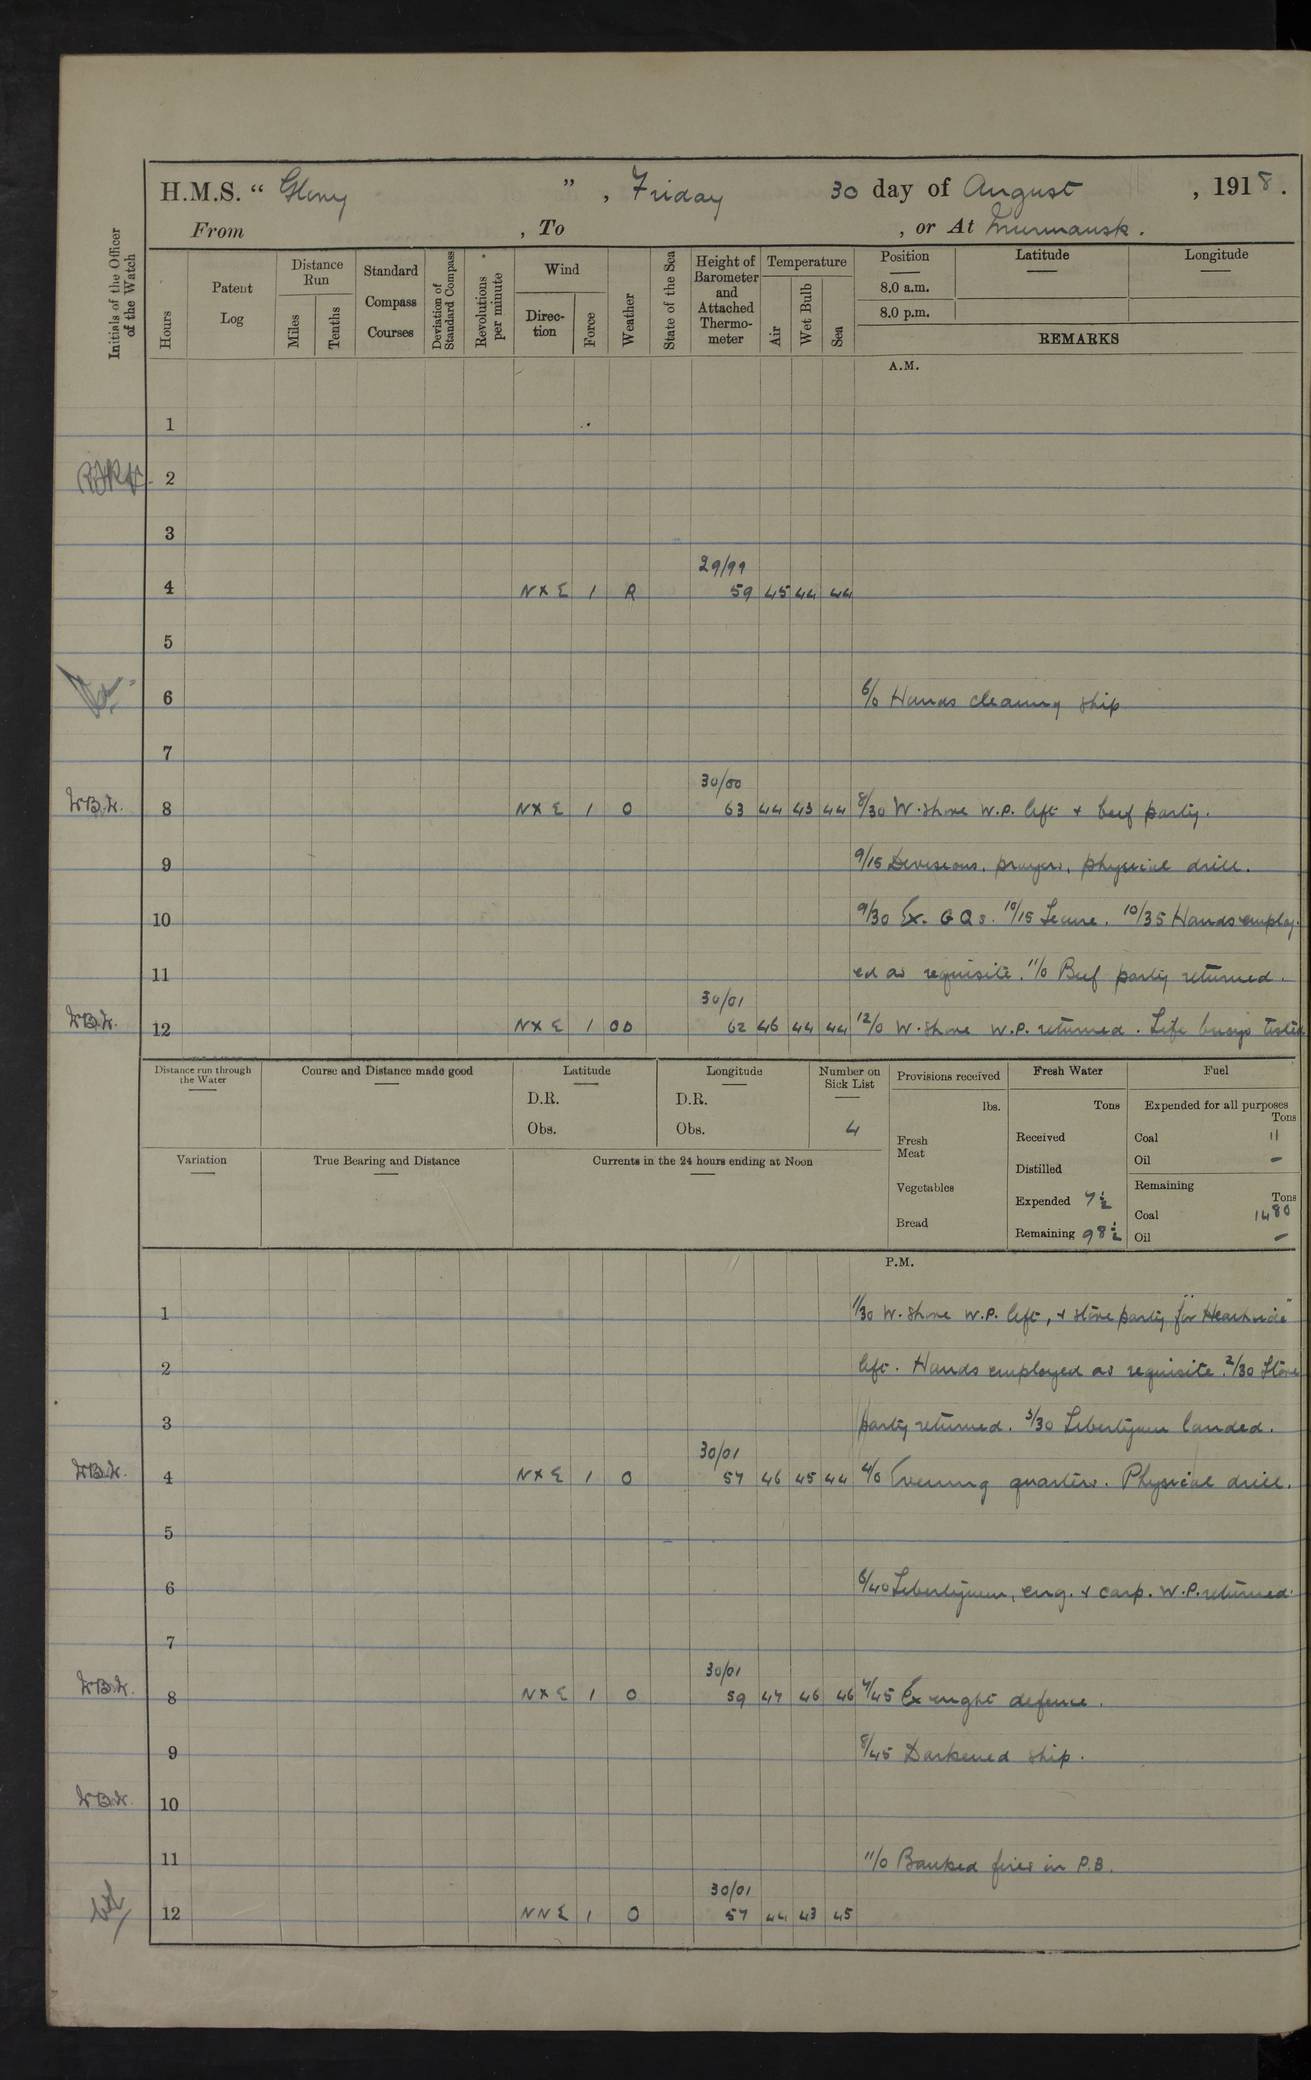 H.M.S. " Glory " , Friday 30 day of August , 1918 .
From , To , or At Murmansk .
Initials of the Officer of the Watch
Hours
Patent Log
Distance Run
Miles
Tenths
Standard Compass Courses
Deviation of Standard Compass
Revolutions per minute
Wind
Direc-tion
Force
Weather
State of the Sea
Height of Barometer and Attached Thermo-meter
Temperature
Air
Wet Bulb
Sea
Position
8.0 a.m.
8.0 p.m.
Latitude
Longitude
REMARKS
A.M.
1
2
3
29/99
4 NXE 1 R 59 45 44 44
5
6 6/0 Hands cleaning ship
7
30/00
W.B.W. 8 NXE 1 O 63 44 43 44 8/30 W. shore W.P. left + beef party.
9 9/15 Divisions, prayers, physical drill.
10 9/30 Ex. G Qs. 10/15 Secure. 10/35 Hands employ-
11 ed as requisite. 11/0 Beef party returned.
30/01
W.B.W. 12 NXE 1 OD 62 46 44 44 12/0 W. shore W.P. returned. Life buoys tested
Distance run through the Water
Course and Distance made good
Latitude
D.R.
Obs.
Longitude
D.R.
Obs.
Number on Sick List
4
Provisions received
lbs.
Fresh Meat
Vegetables
Bread
Fresh Water
Tons
Received
Distilled
Expended 7½
Remaining 98½
Fuel
Expended for all purposes
Tons
Coal 11
Oil –
Remaining
Tons
Coal 1480
Oil –
Variation
True Bearing and Distance
Currents in the 24 hours ending at Noon
P.M.
1 1/30 W. shore W.P. left, + store party for
2 left. Hands employed as requisite. 2/30 Store
3 party returned. 3/30 Libertymen landed.
30/01
W.B.W. 4 NXE 1 O 57 46 45 44 4/0 Evening quarters. Physical drill.
5
6 6/40 Libertymen, eng. + carp. W.P. returned.
7
30/01
W.B.W. 8 NXE 1 O 59 47 46 46 7/45 Ex night defence.
9 8/45 Darkened ship.
W.B.W. 10
11 11/0 Banked fires in P.B.
30/01
12 NNE 1 O 57 44 43 45